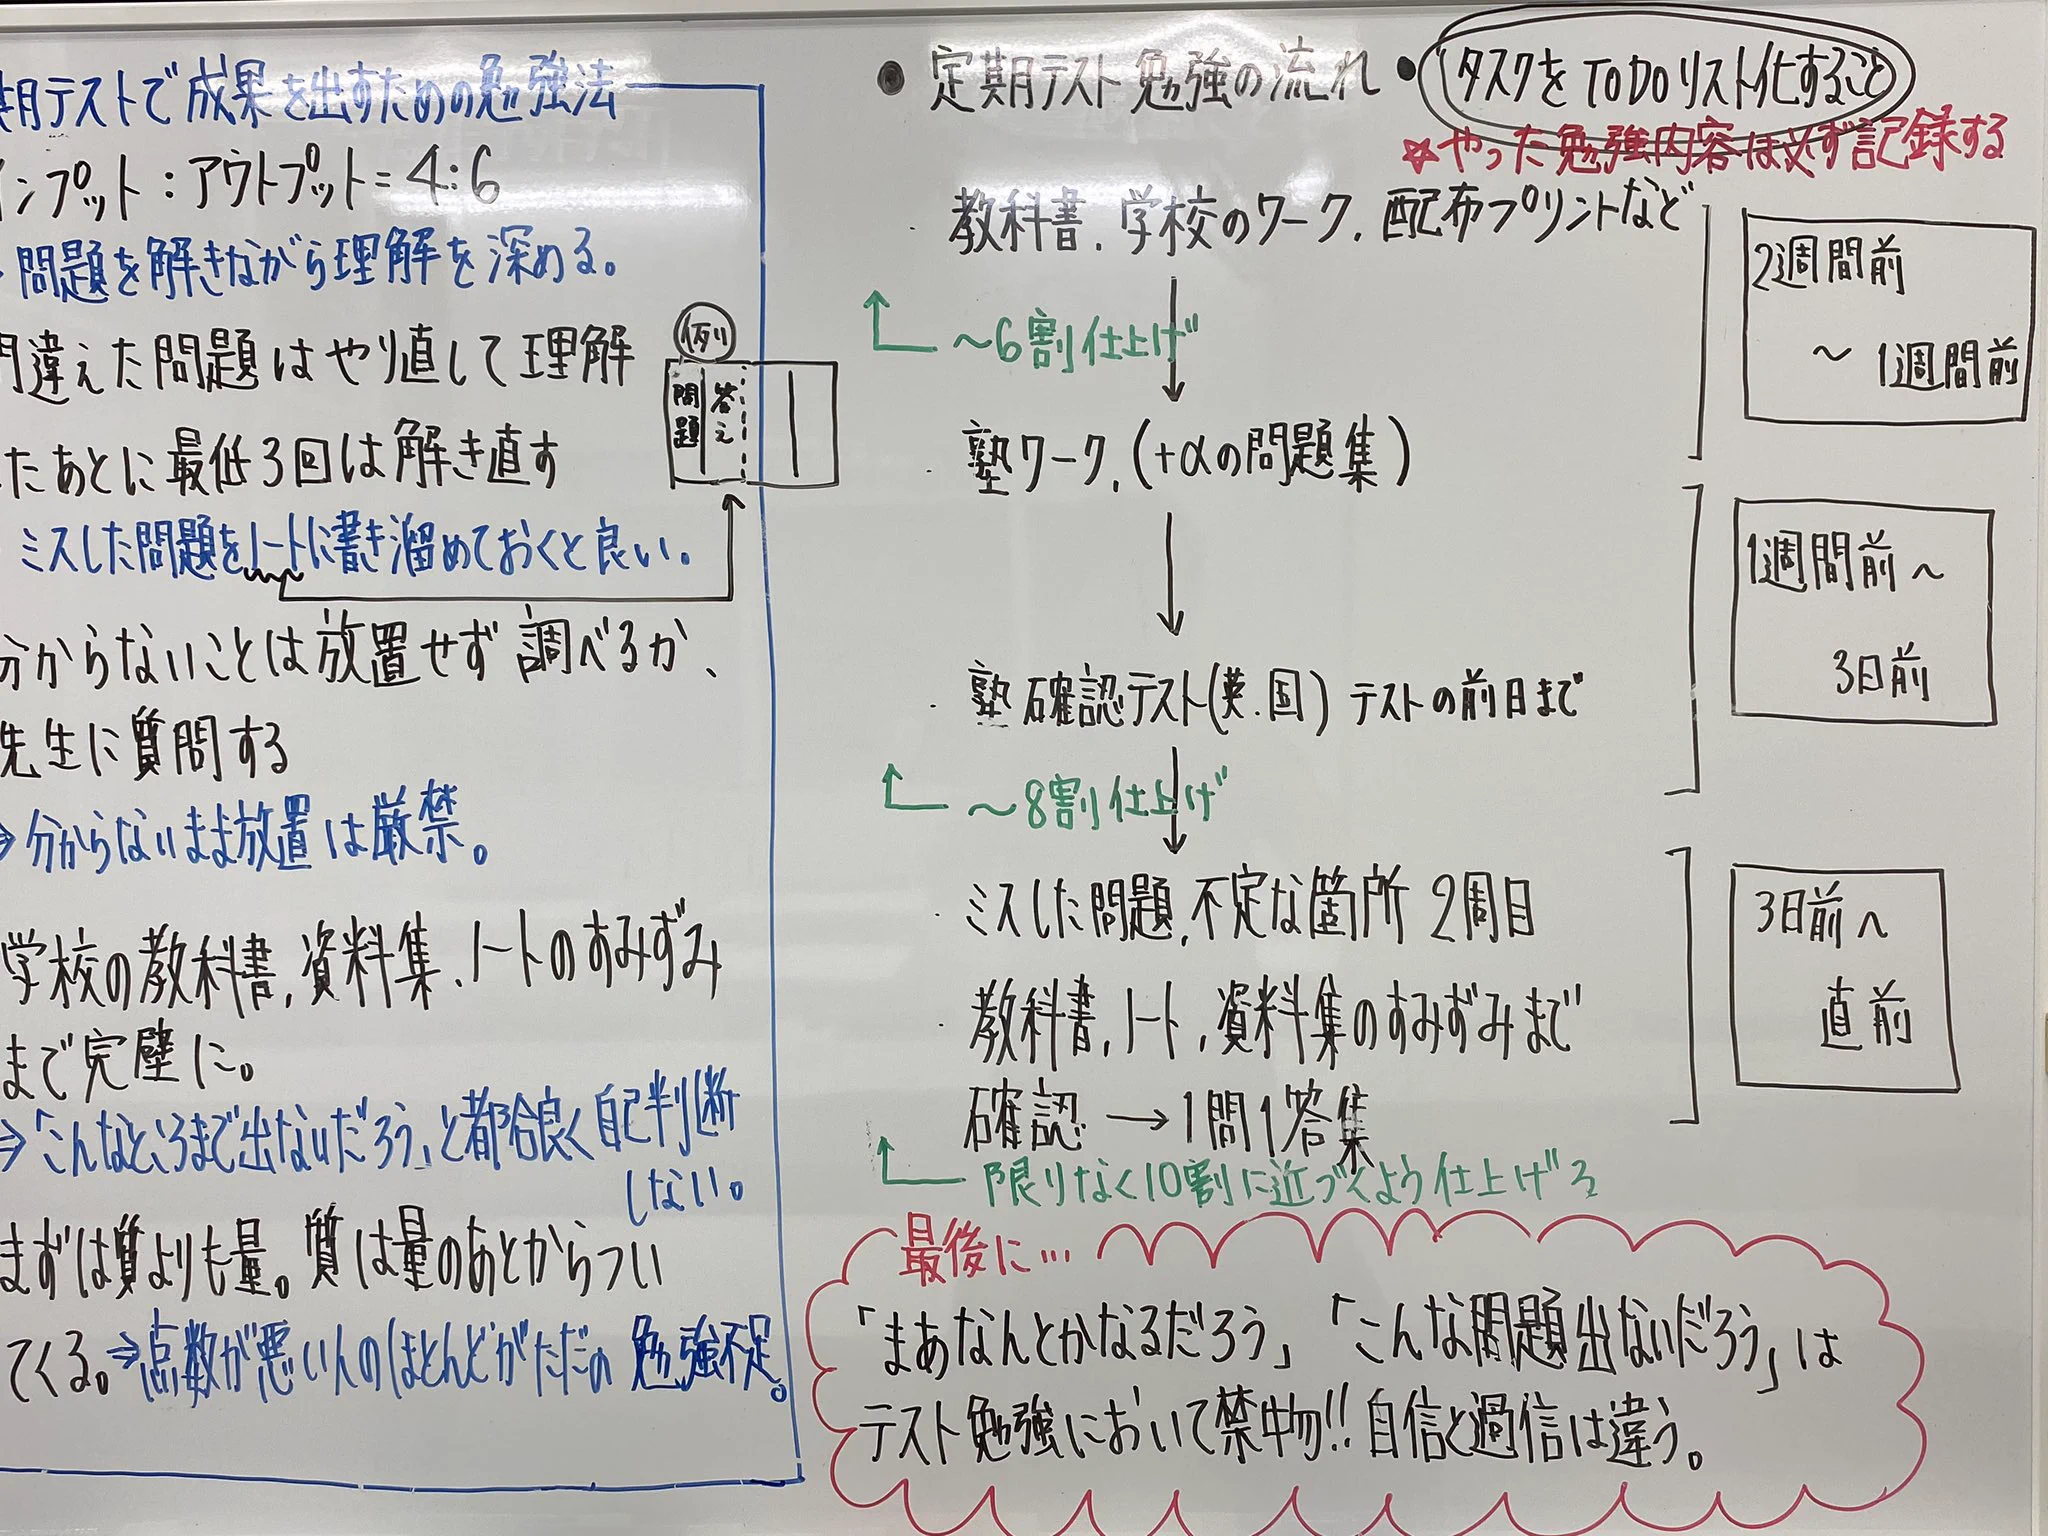 期テストで成果を出すための勉強法
インプット:アウトプット=4:6
問題を解きながら理解を深める。
間違えた問題はやり直して理解
たあとに最低3回は解き直す
ミスした問題をノートに書き溜めておくと良い。
例
問題
答え
分からないことは放置せず調べるか、
先生に質問する
⇒分からないまま放置は厳禁。
学校の教科書,資料集,ノートのすみずみ
まで完璧に。
⇒「こんなところまで出ないだろう」と都合良く自己判断
しない。
まずは質よりも量。質は量のあとからつい
てくる。⇒点数が悪い人のほとんどがただの勉強不足。
● 定期テスト勉強の流れ
● タスクをTODOリスト化すること
☆やった勉強内容は必ず記録する
・教科書,学校のワーク,配布プリントなど
〜6割仕上げ
・塾ワーク,(+αの問題集)
・塾確認テスト(英.国) テストの前日まで
〜8割仕上げ
・ミスした問題,不定な箇所 2周目
・教科書,ノート,資料集のすみずみまで
確認→1問1答集
限りなく10割に近づくよう仕上げる
2週間前
〜1週間前
1週間前〜
3日前
3日前〜
直前
最後に…
「まあなんとかなるだろう」「こんな問題出ないだろう」は
テスト勉強において禁物!!自信と過信は違う。